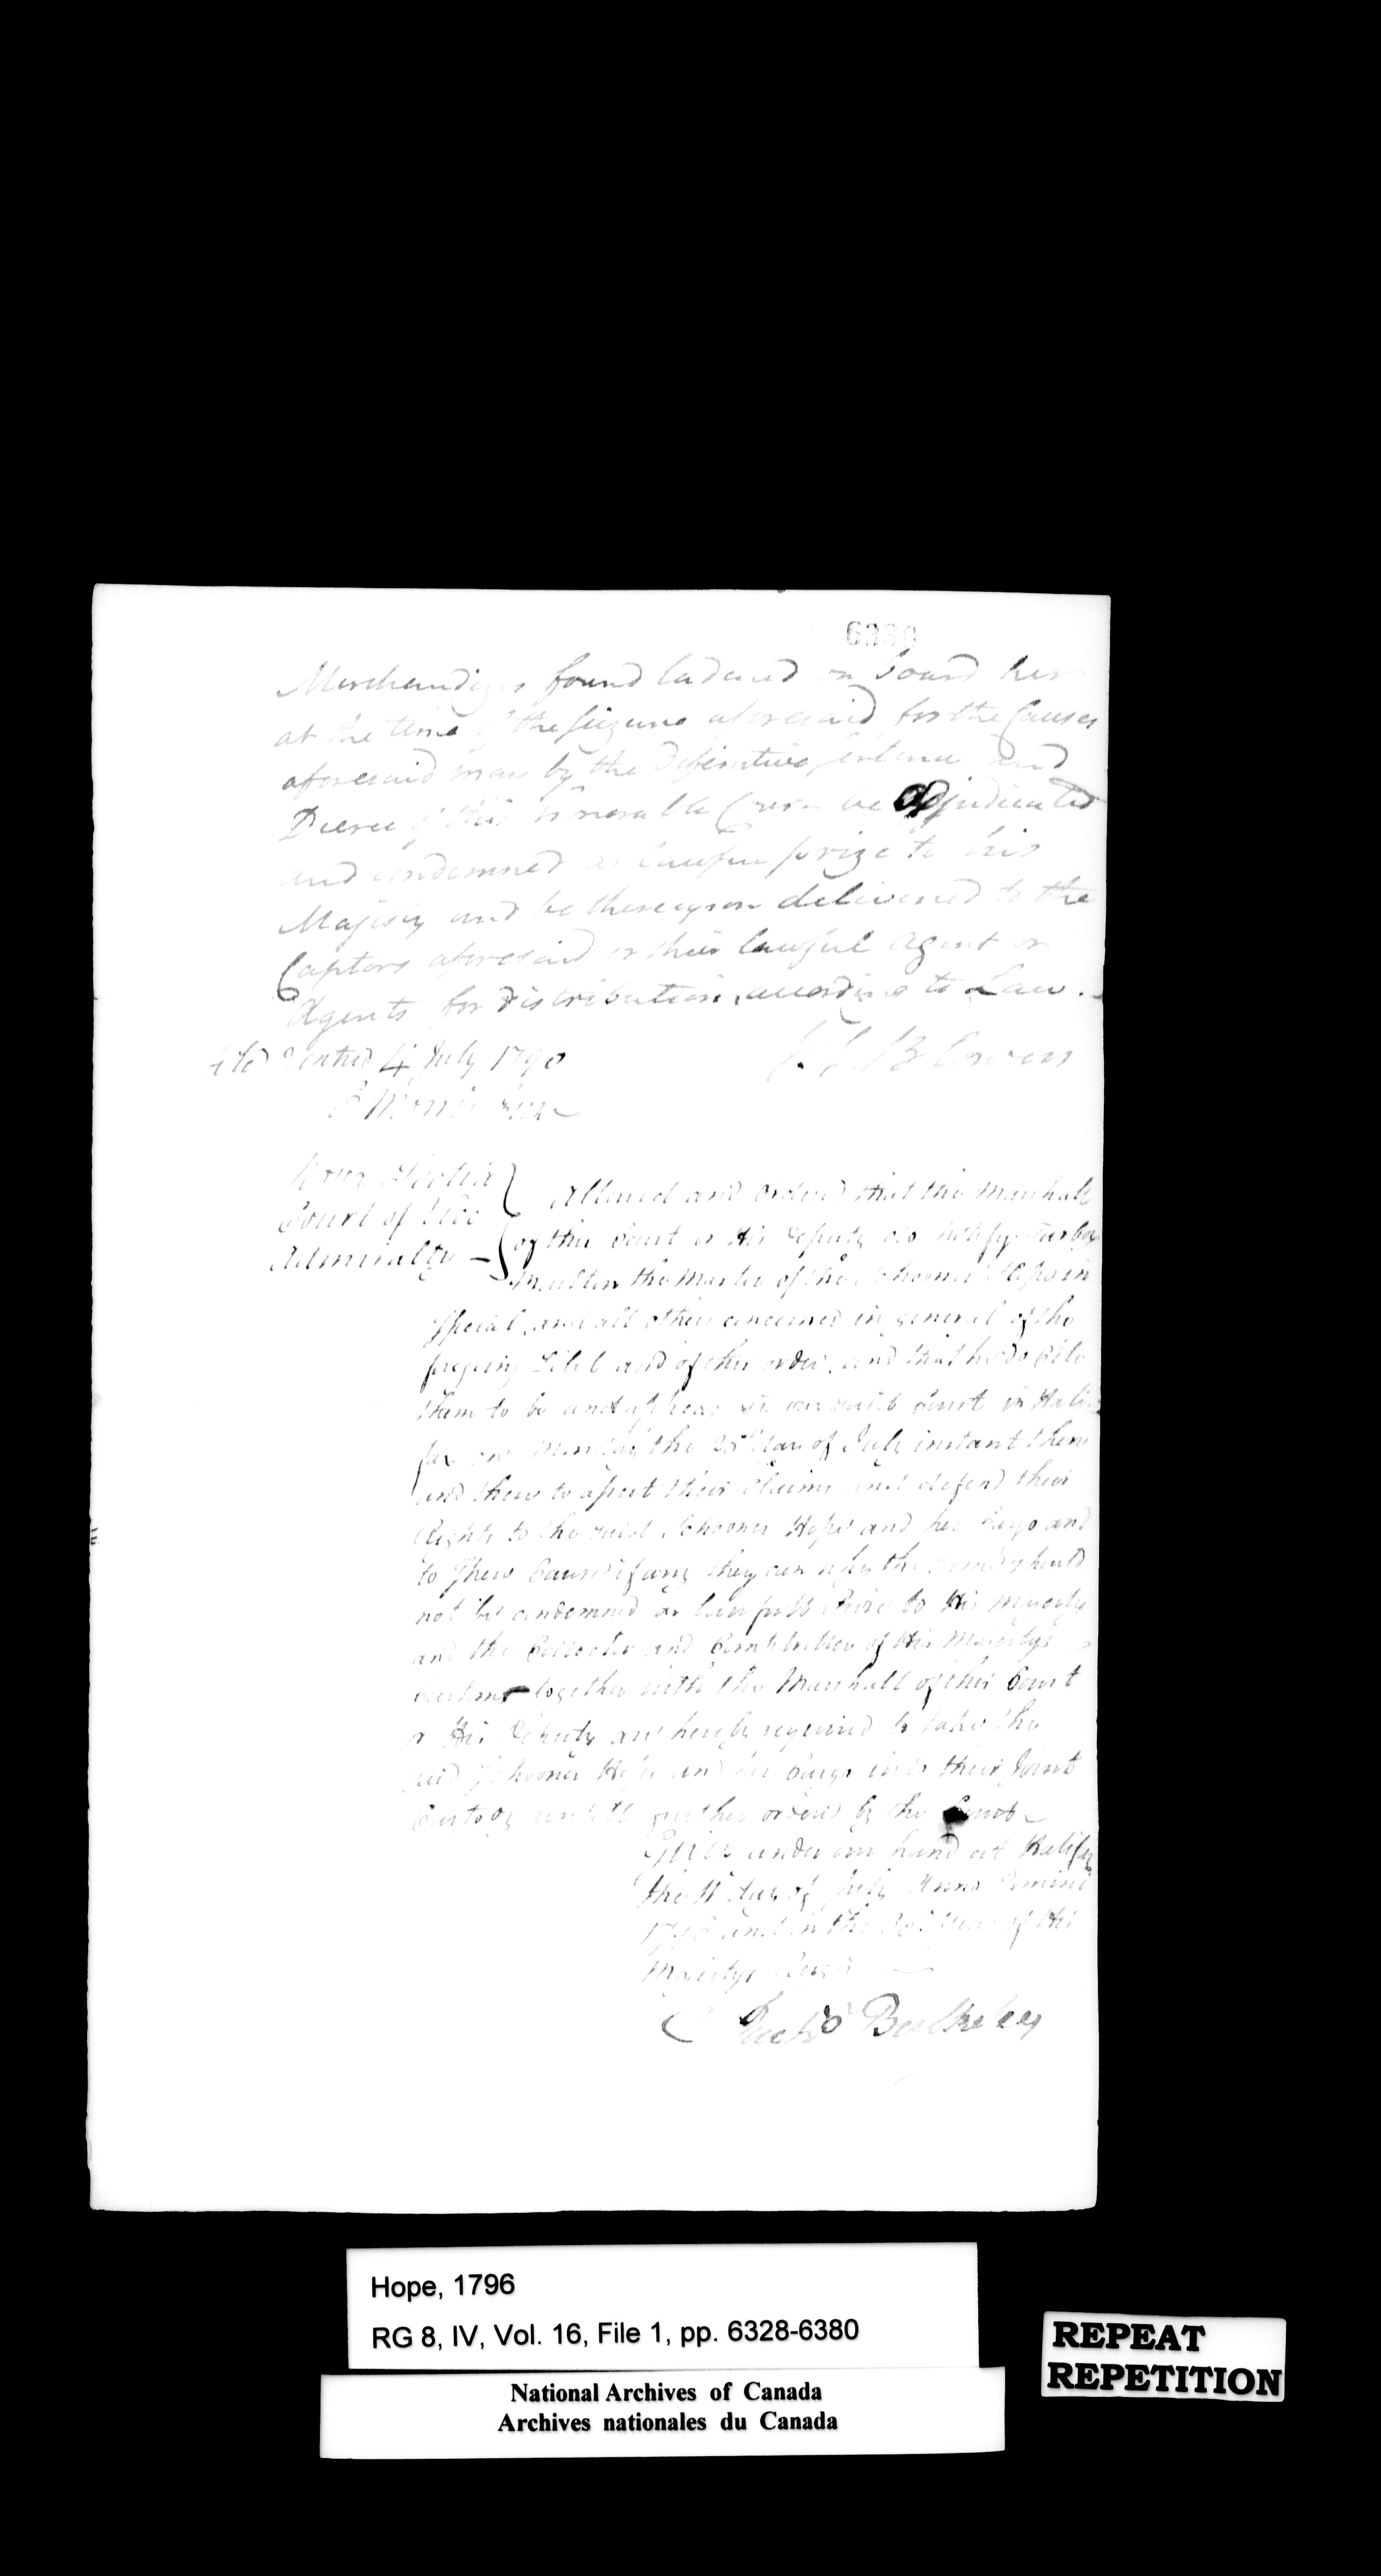 Merchandizes found ladened on board her
at the time of the seizure aforesaid for the Causes
aforesaid may by the Definitive Sentence and
Decree of this Honorable Court be adjudicated
and condemned as lawfull prize to his
Majesty and be thereupon delivered to the
Captors aforesaid or their lawful Agent or
Agents for distribution, according to Law.
Blowers
4 July 1796
Nova Scotia
Court of Vice
Admiralty
Allowed and Ordered that the Marshall
of this Court or His Deputy do notify
the Master of the Schooner Hope in
special, and all others concerned in general of the
foregoing Libel and of this order, and that he do Cite
them to be and appear at our said Court in Hali
fax on Monday the 25th day of July instant then
and there to assert their Claims and defend their
Rights to the said Schooner Hope and her Cargo and
to Shew Cause if any they can why the same should
not be condemned as lawfull Prize to His Majesty
and the Collector and Comptroller of His Majestys
Customs together with the Marshall of this Court
or His Deputy are hereby required to take the
said Schooner Hope and her Cargo into their Joint
Custody untill further orders by the Court
Given under our hand at Halifax
the day of July Anno Domini
1796 and in the 36th Year of His
Majestys Reign
Richd Bulkeley
Hope, 1796
RG 8, IV, Vol. 16, File 1, pp. 6328-6380
National Archives of Canada
Archives nationales du Canada
REPEAT
REPETITION